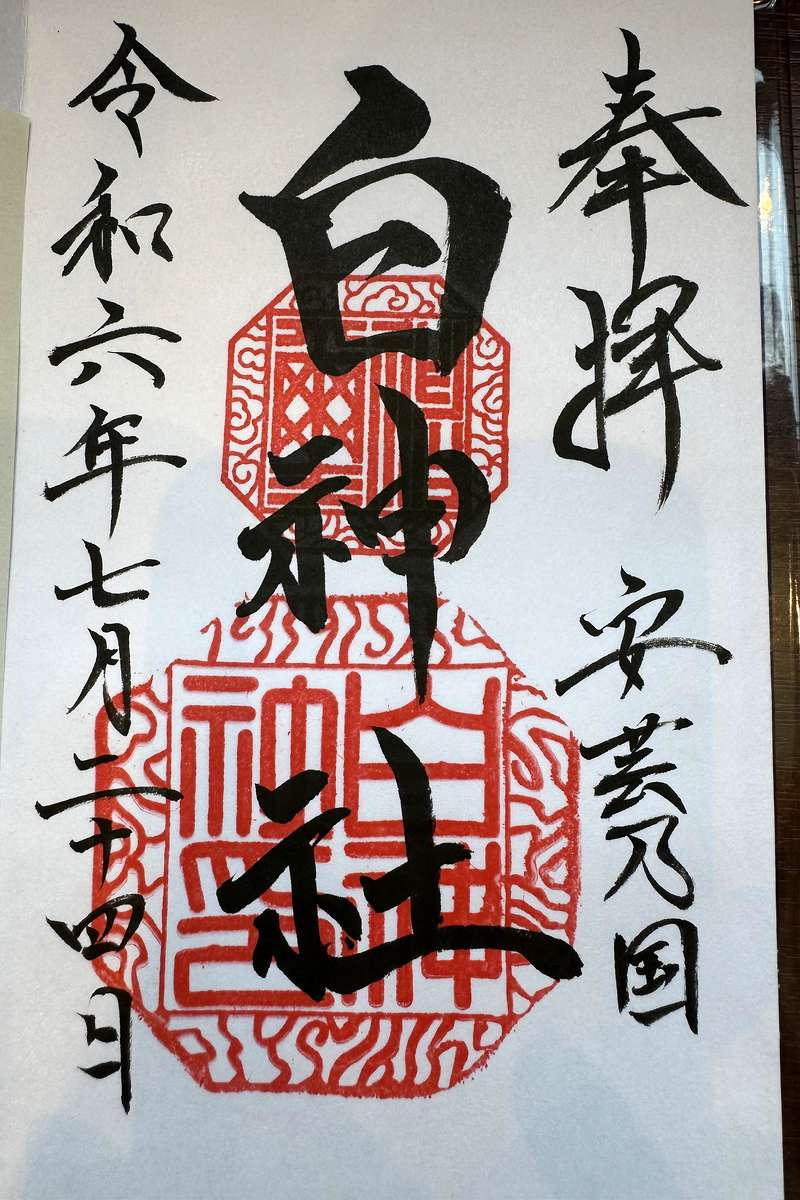 奉拝　安芸乃国
白神社
白神社印
令和六年七月二十四日